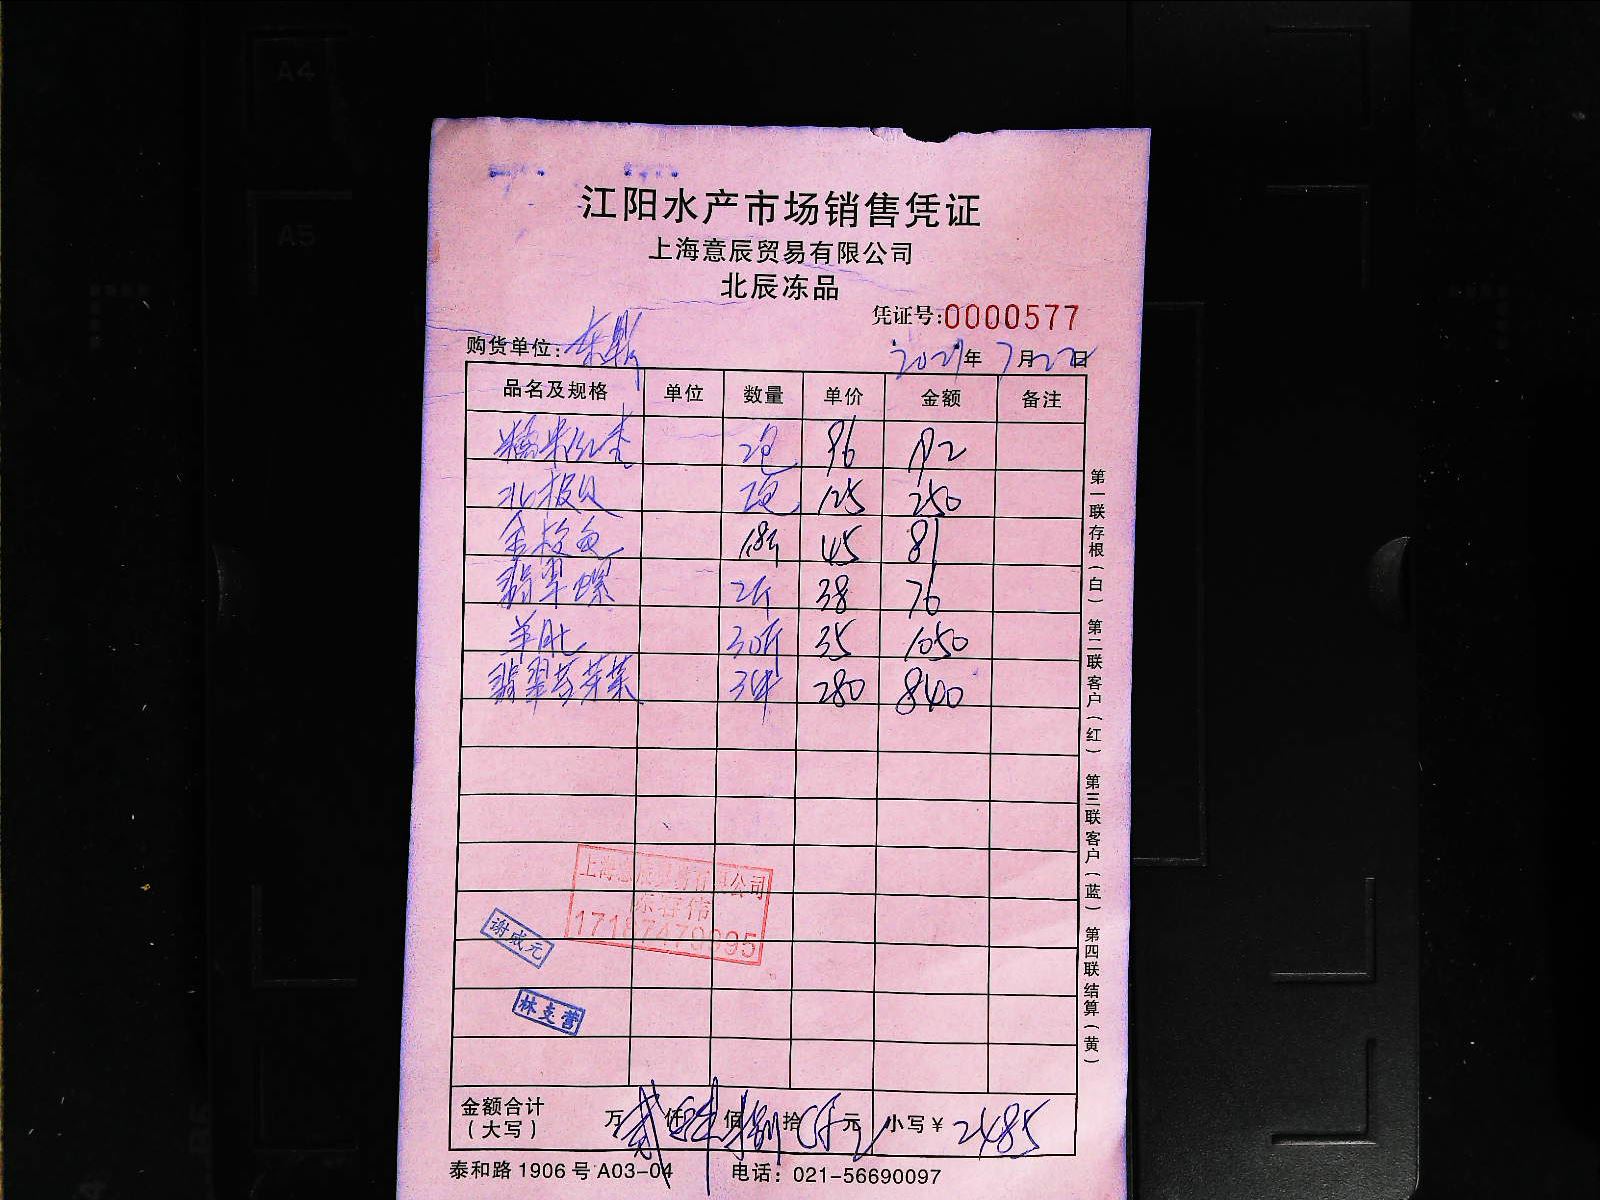 A4
A5
江阳水产市场销售凭证
上海意辰贸易有限公司
北辰冻品
凭证号:0000577
购货单位: 东黔 2021年7月22日
品名及规格 单位 数量 单价 金额 备注
糯米红枣 2包 96 192
北极贝 2包 125 250
金枪鱼 1.8斤 45 81
翡翠螺 2斤 38 76
羊肚 30斤 35 1050
翡翠 3件 280 840
上海意辰贸易有限公司
伟
谢成元
林支营
金额合计(大写) 万 贰仟 肆佰 捌拾 伍元 小写¥ 2485
泰和路1906号A03-04 电话: 021-56690097
第一联存根(白) 第二联客户(红) 第三联客户(蓝) 第四联结算(黄)